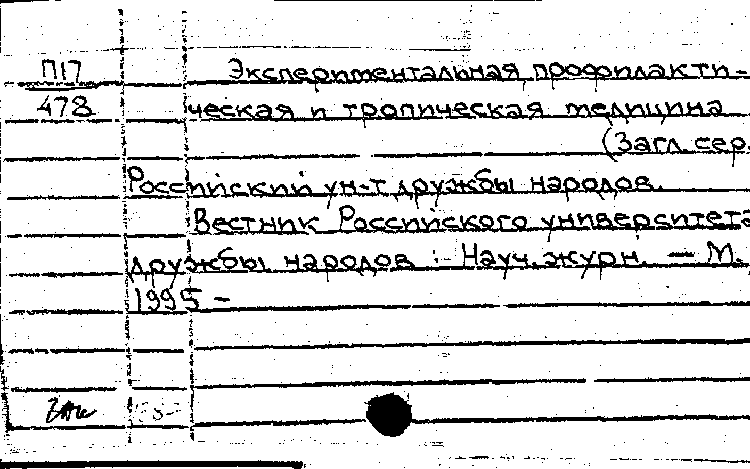 П17
478
Экспериментальная, профилакти-
ческая и тропическая медицина
(Загл. сер.
Российский ун-т дружбы народов.
Вестник Российского университета
дружбы народов :- Науч. журн. — М.
1995 -